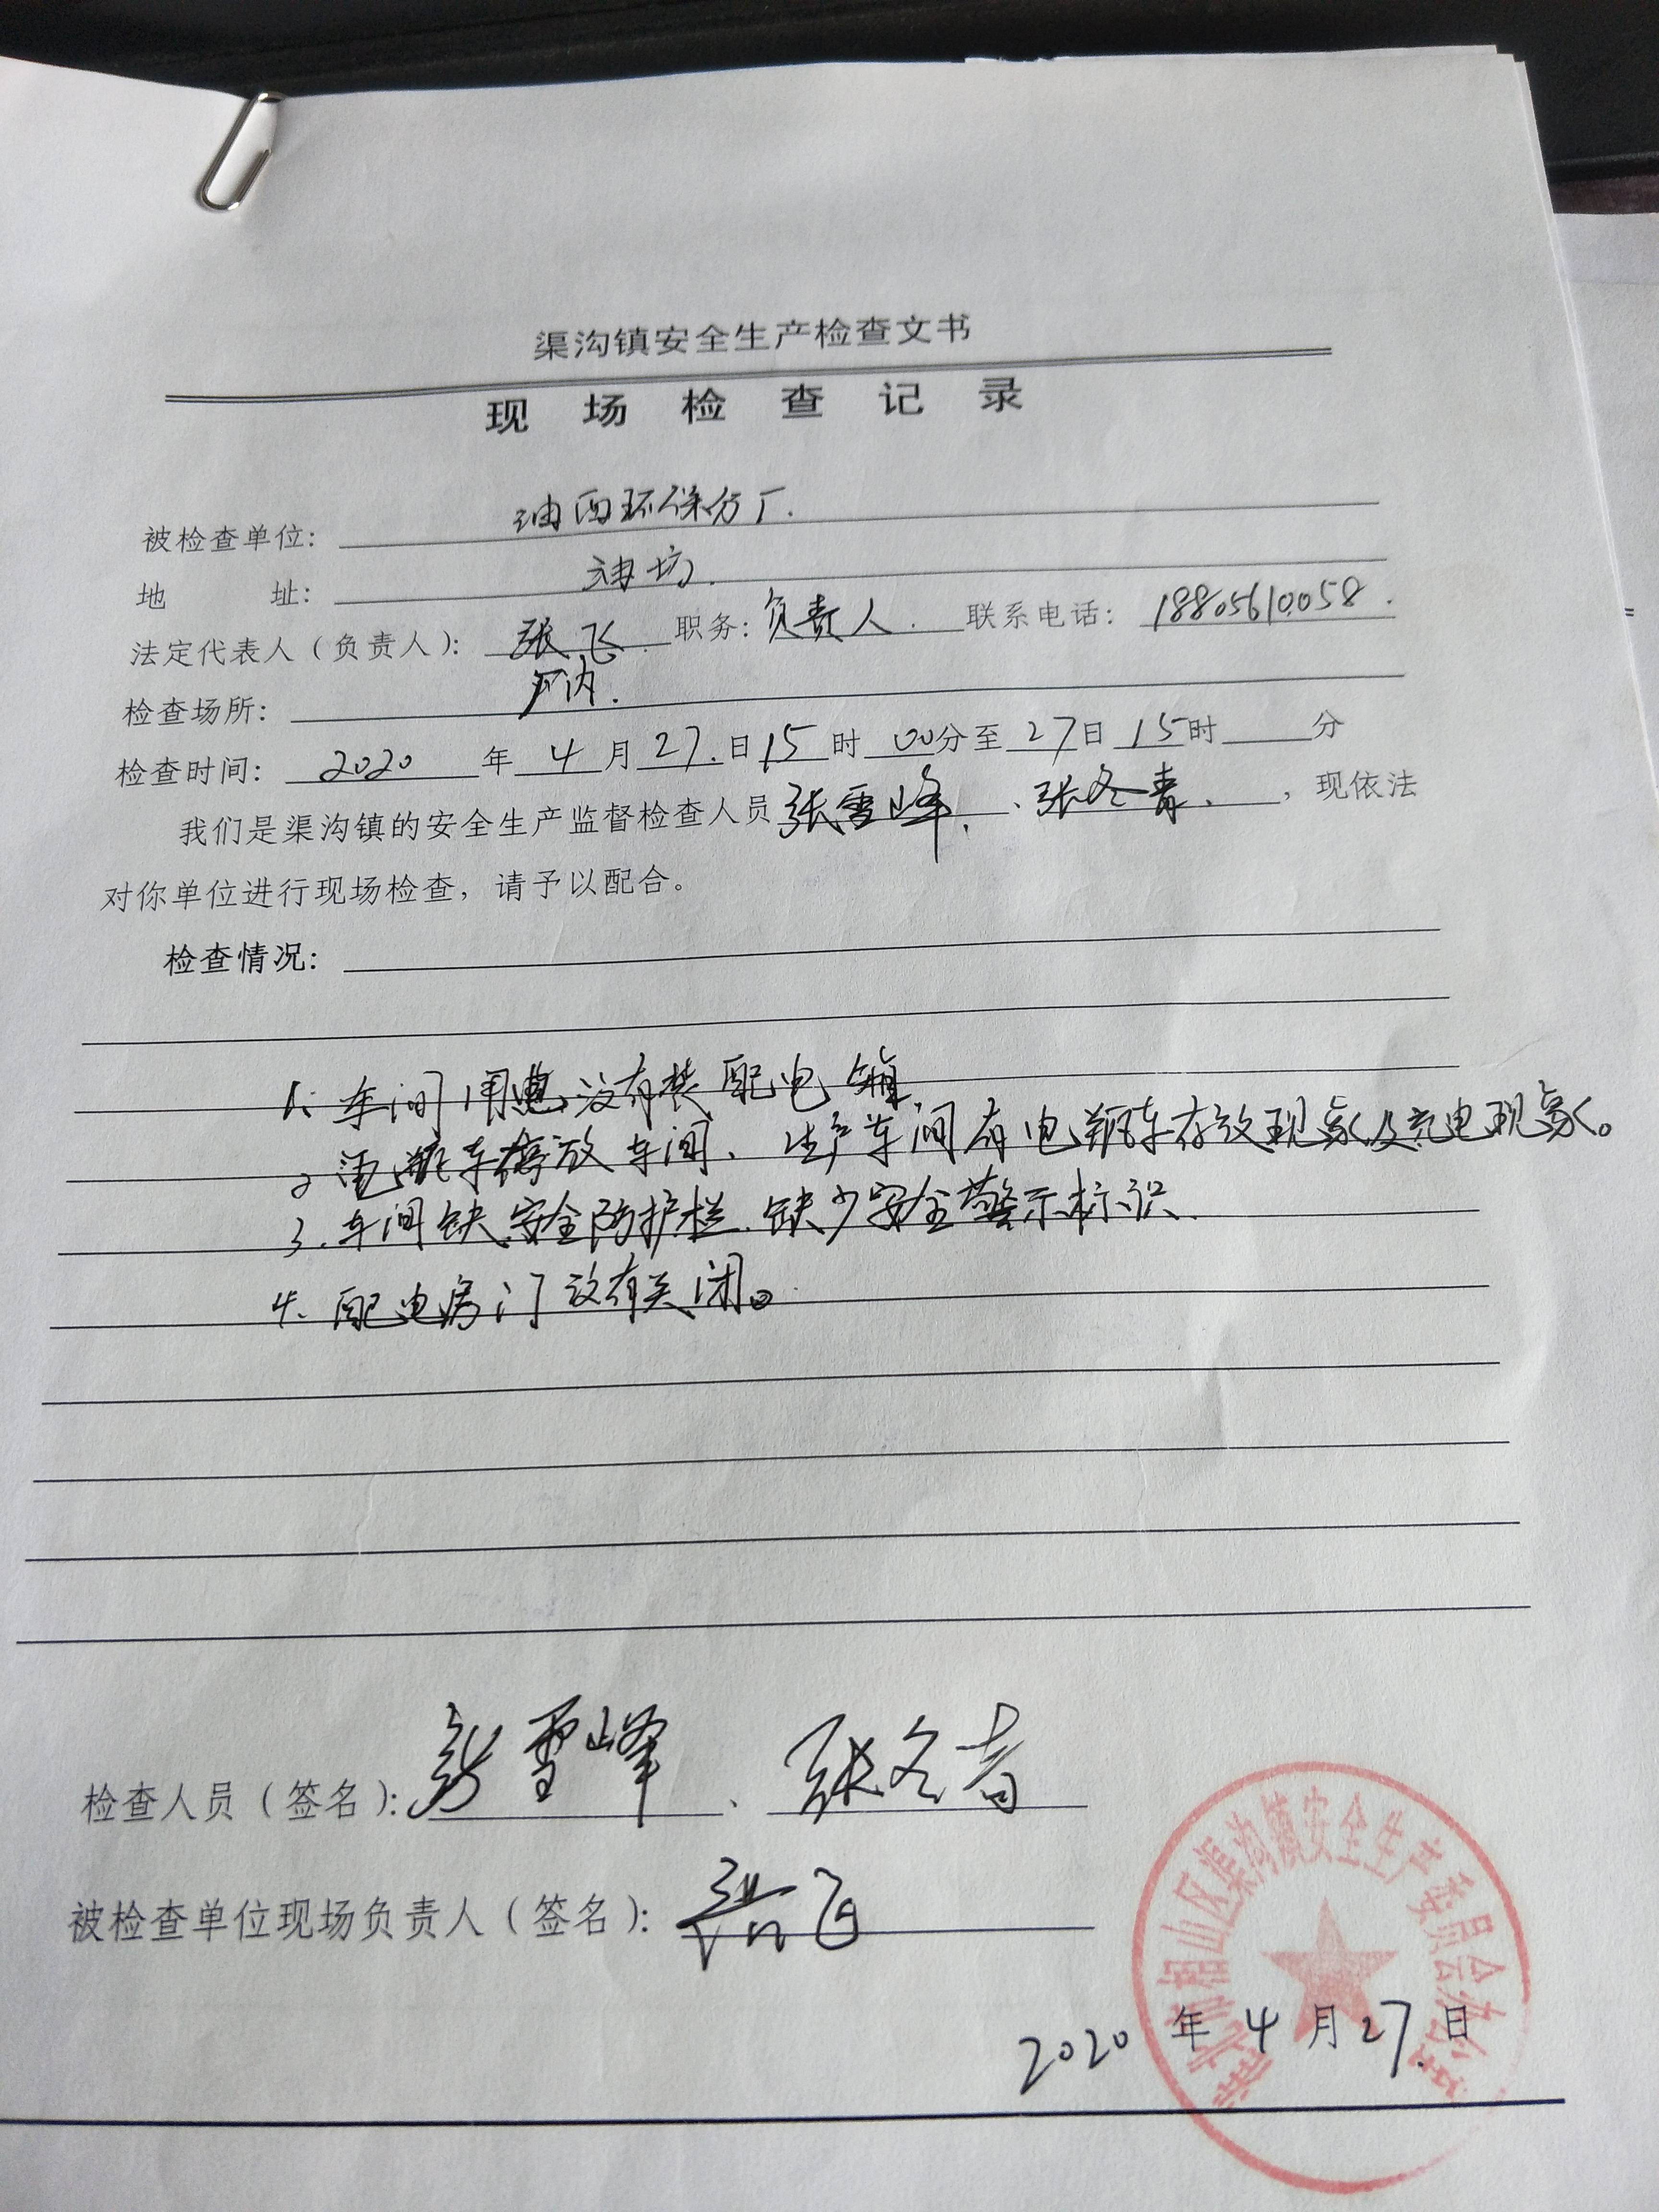 渠沟镇安全生产检查文书
现场检查记录
被检查单位：油西环保分厂.
地 址：油坊.
法定代表人（负责人）：张飞 职务：负责人. 联系电话：18805610058.
检查场所：厂内.
检查时间：2020年4月27.日15时00分至27日15时 分
我们是渠沟镇的安全生产监督检查人员张雪峰、张冬青、，现依法
对你单位进行现场检查，请予以配合。
检查情况：
1、车间用电没有装配电箱.
2 电瓶车停放车间、生产车间有电瓶车存放现象及充电现象。
3.车间缺安全防护栏.缺少安全警示标识.
4.配电房门没有关闭。
检查人员（签名）：张雪峰、张冬青
被检查单位现场负责人（签名）：张飞
淮北市相山区渠沟镇安全生产委员会办公室
2020年4月27.日